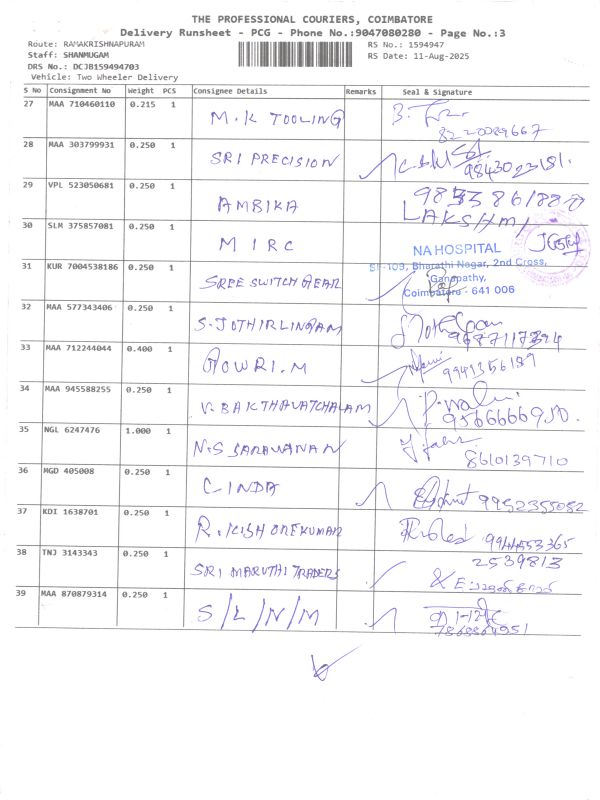 THE PROFESSIONAL COURIERS, COIMBATORE
Delivery Runsheet - PCG - Phone No.:9047080280 - Page No.:3
Route: RAMAKRISHNAPURAM RS No.: 1594947
Staff: SHANMUGAM RS Date: 11-Aug-2025
DRS No.: DCJB159494703
Vehicle: Two Wheeler Delivery
S No Consignment No Weight PCS Consignee Details Remarks Seal & Signature
27 MAA 710460110 0.215 1 M.K TOOLING
8220089667
28 MAA 303799931 0.250 1 SRI PRECISION
9843023181.
29 VPL 523050681 0.250 1 AMBIKA
LAKSHMI
30 SLM 375857081 0.250 1 MIRC
NA HOSPITAL
SF-109, Bharathi Nagar, 2nd Cross,
Ganapathy,
Coimbatore - 641 006
31 KUR 7004538186 0.250 1 SREE SWITCH GEAR
32 MAA 577343406 0.250 1 S.JOTHIRLINGAM
33 MAA 712244044 0.400 1 GOWRI.M
9941356189
34 MAA 945588255 0.250 1 V. BAKTHAVATCHALAM
35 NGL 6247476 1.000 1 N.S SARAVANAN
8610139710
36 MGD 405008 0.250 1 C.INDA
9952355082
37 KDI 1638701 0.250 1 R.KISHOREKUMAR
38 TNJ 3143343 0.250 1 SRI MARUTHI TRADERS
2539813
39 MAA 870879314 0.250 1 S/L/N/M